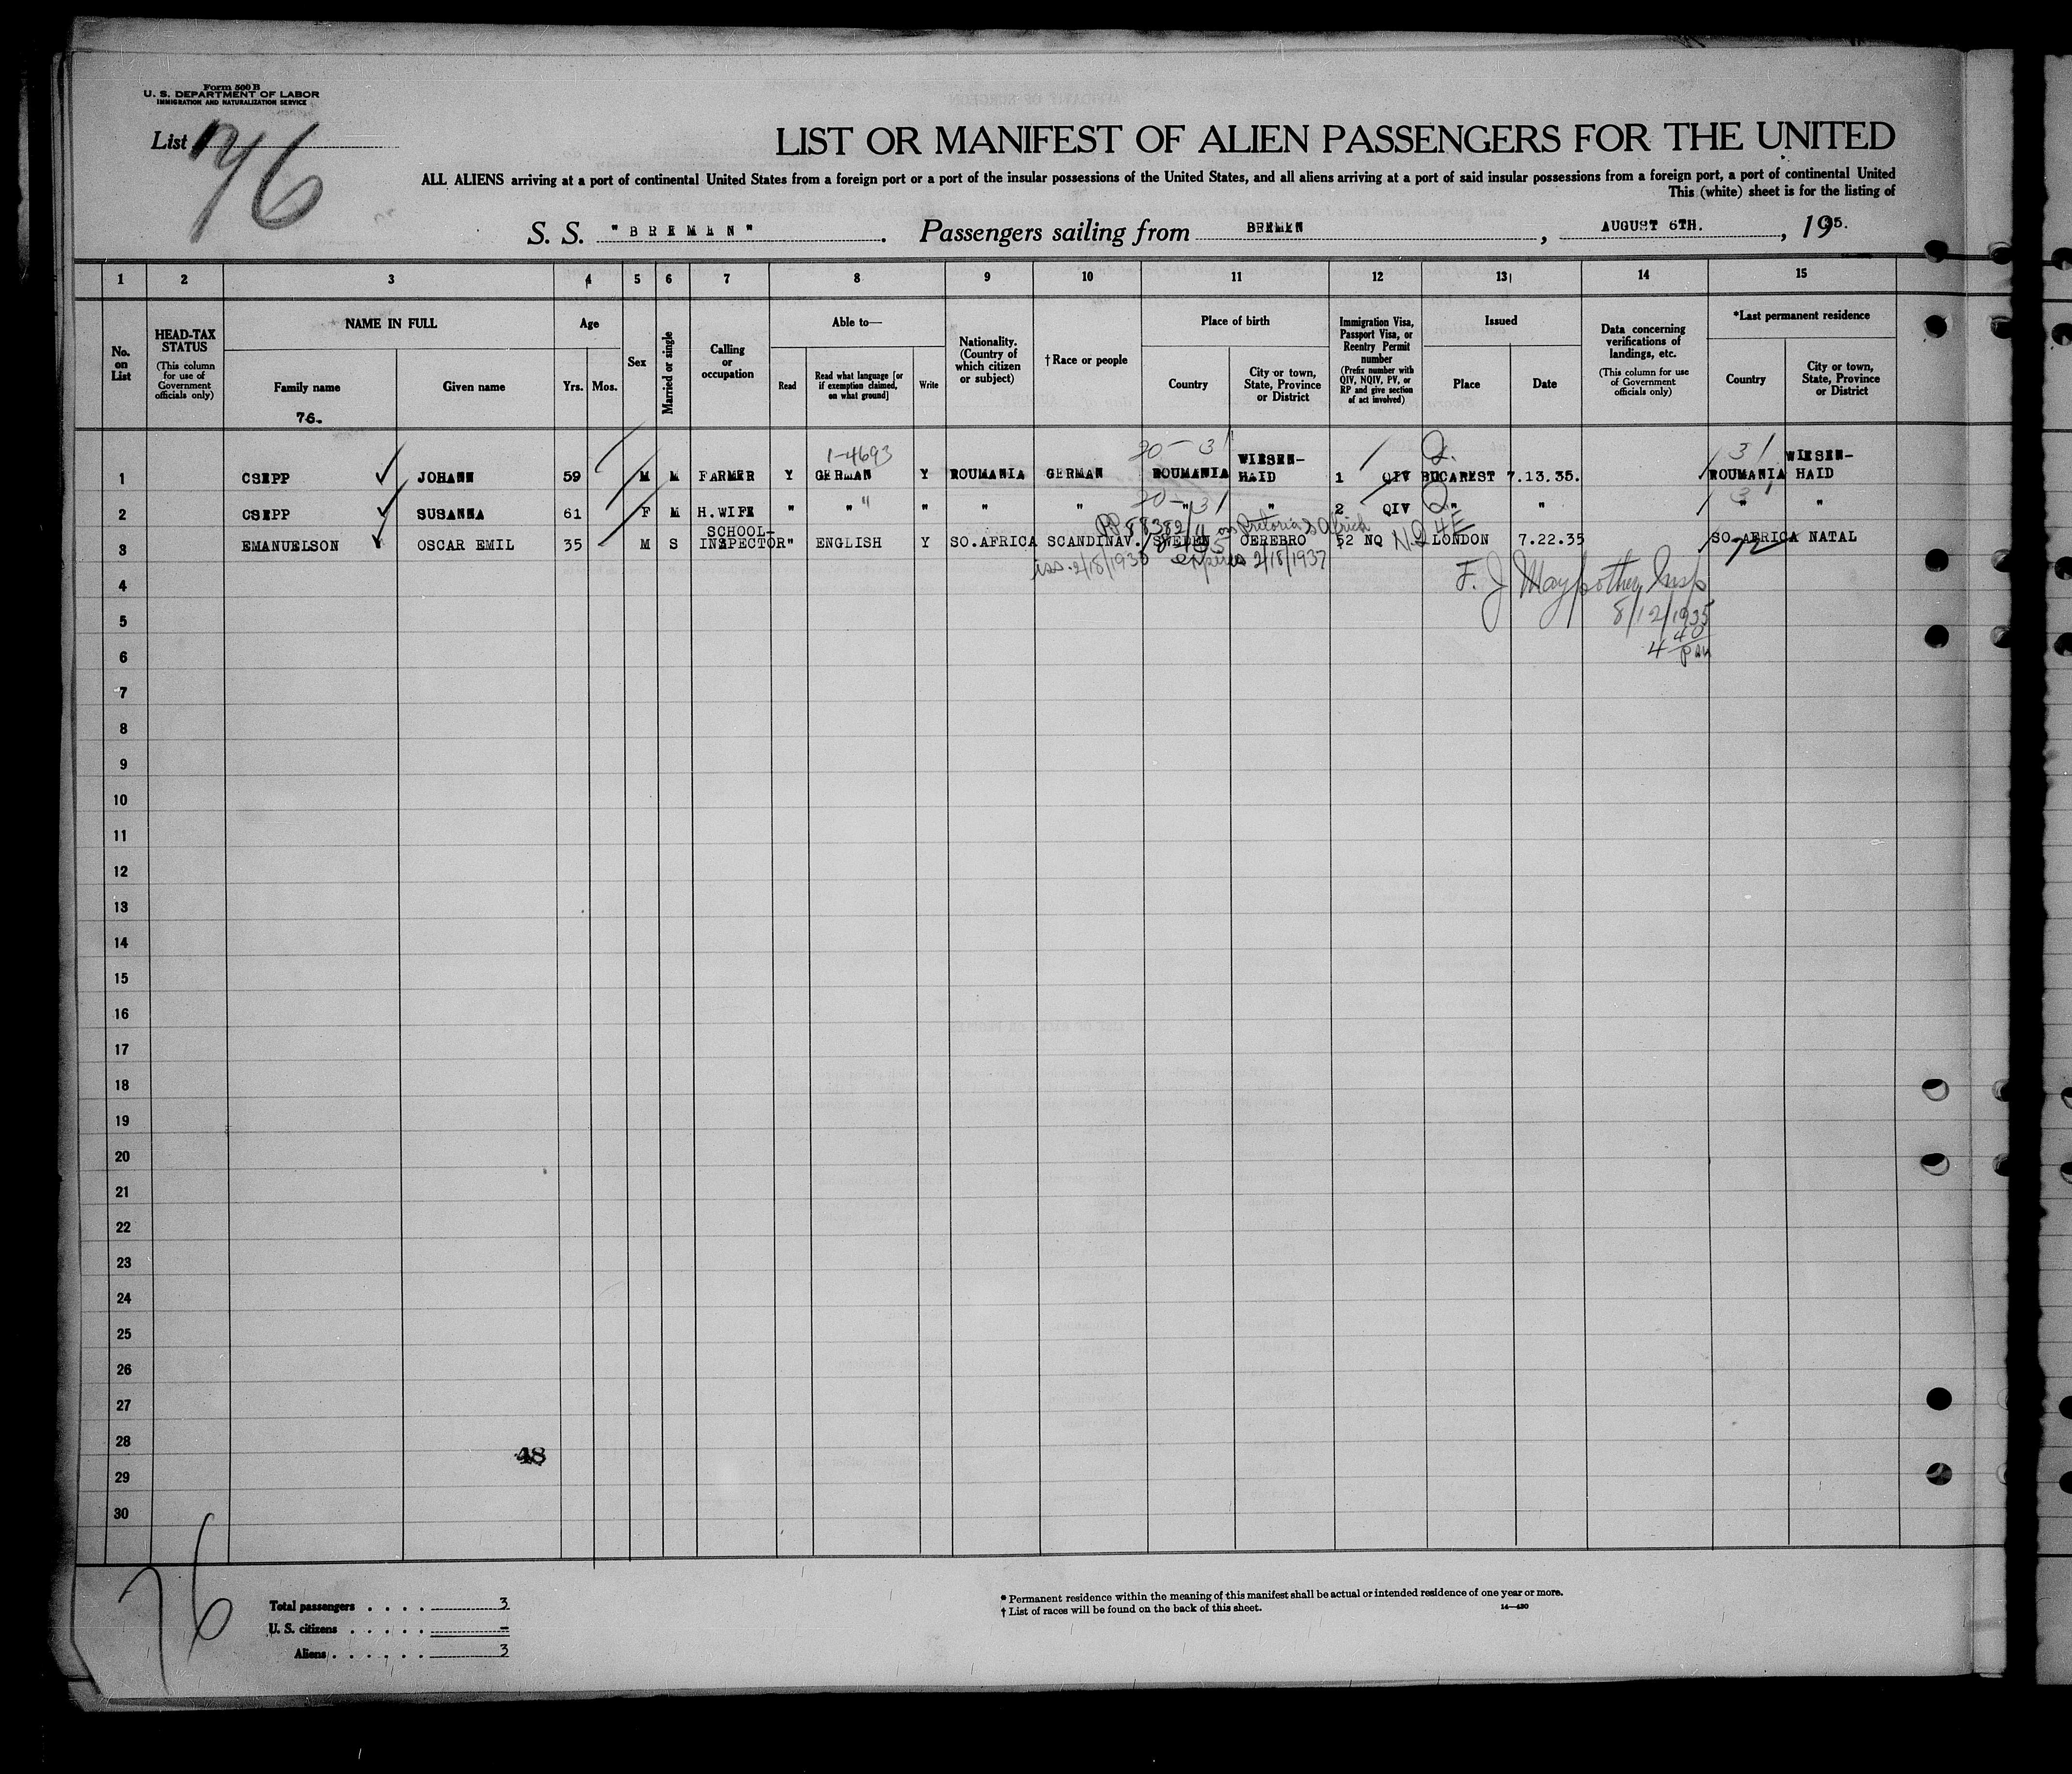 Form 500 B
U. S. DEPARTMENT OF LABOR
IMMIGRATION AND NATURALIZATION SERVICE
List 76
LIST OR MANIFEST OF ALIEN PASSENGERS FOR THE UNITED
ALL ALIENS arriving at a port of continental United States from a foreign port or a port of the insular possessions of the United States, and all aliens arriving at a port of said insular possessions from a foreign port, a port of continental United
This (white) sheet is for the listing of
S. S. "BREMEN". Passengers sailing from BREMEN, AUGUST 6TH., 1935.
1 2 3 4 5 6 7 8 9 10 11 12 13 14 15
No. on List
HEAD-TAX STATUS (This column for use of Government officials only)
NAME IN FULL
Family name
76.
Given name
Age
Yrs. Mos.
Sex
Married or single
Calling or occupation
Able to—
Read
Read what language [or if exemption claimed, on what ground]
Write
Nationality. (Country of which citizen or subject)
†Race or people
Place of birth
Country
City or town, State, Province or District
Immigration Visa, Passport Visa, or Reentry Permit number (Prefix number with QIV, NQIV, PV, or RP and give section of act involved)
Issued
Place
Date
Data concerning verifications of landings, etc. (This column for use of Government officials only)
*Last permanent residence
Country
City or town, State, Province or District
1-4693 30-31 Q. 31
1 CSEPP JOHANN 59 M M FARMER Y GERMAN Y ROUMANIA GERMAN ROUMANIA WIESEN-HAID 1 QIV BUCAREST 7.13.35. ROUMANIA WIESEN-HAID
30-31 Q 31
2 CSEPP SUSANNA 61 F M H.WIFE " " " " " " " 2 QIV " " " "
PP 88382 Pretoria S Africa
3 EMANUELSON OSCAR EMIL 35 M S SCHOOL-INSPECTOR " ENGLISH Y SO.AFRICA SCANDINAV. SWEDEN OEREBRO 52 NQ NQ 4E LONDON 7.22.35 SO.AFRICA NATAL
72
iss. 2/18/1935 expires 2/18/1937
4 F. J. Maypother Insp
5 8/12/1935
6 4 40 pm
7
8
9
10
11
12
13
14
15
16
17
18
19
20
21
22
23
24
25
26
27
28
48
29
30
76
Total passengers . . . . 3
U. S. citizens . . . . . –
Aliens . . . . . . 3
* Permanent residence within the meaning of this manifest shall be actual or intended residence of one year or more.
† List of races will be found on the back of this sheet.
14—430